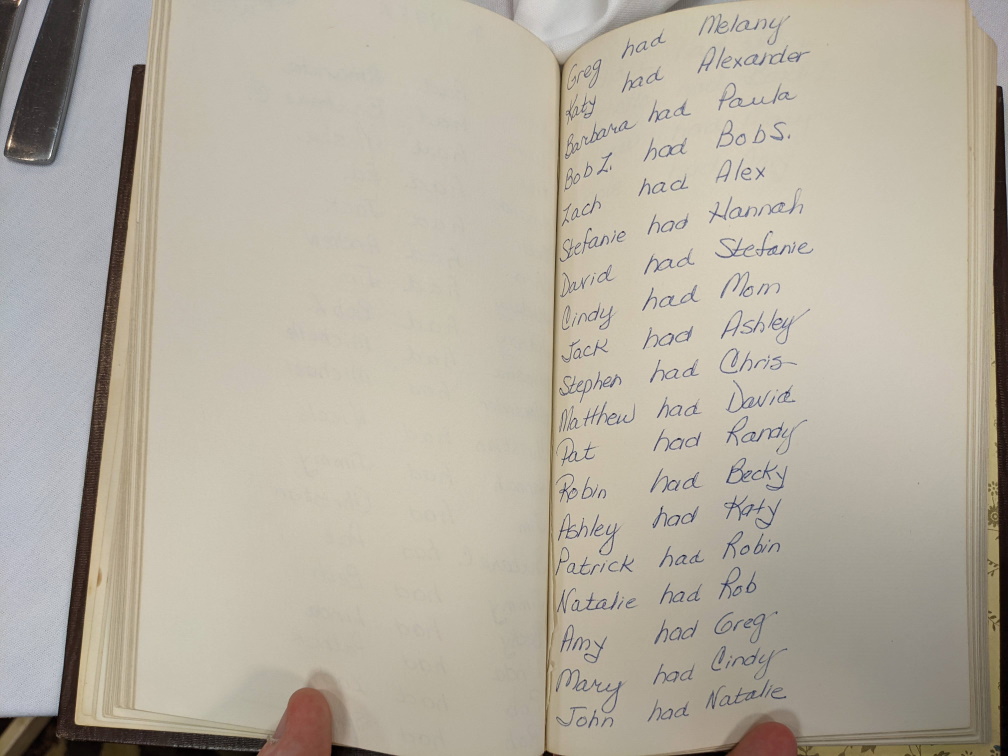 Greg had Melany
Katy had Alexander
Barbara had Paula
Bob Z. had Bob S.
Zach had Alex
Stefanie had Hannah
David had Stefanie
Cindy had Mom
Jack had Ashley
Stephen had Chris
Matthew had David
Pat had Randy
Robin had Becky
Ashley had Katy
Patrick had Robin
Natalie had Rob
Amy had Greg
Mary had Cindy
John had Natalie